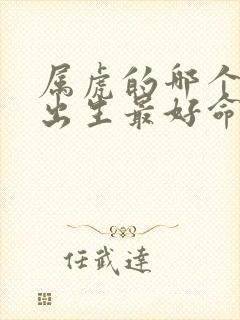 属虎的哪个
出生最好命
任武達